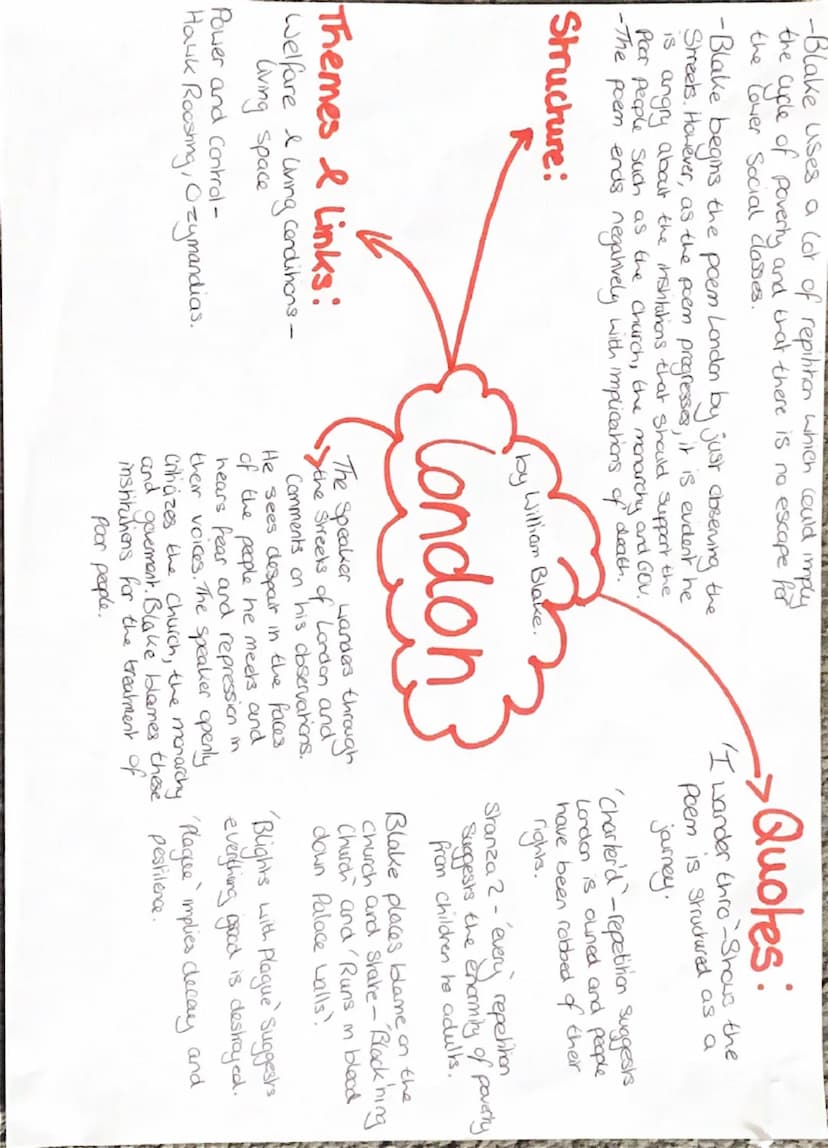 -Blake uses a lot of repitition which could imply
the cycle of poverty and that there is no escape for
the lower social classes.
-Blake begins the poem London by just observing the
Streets. However, as the poem progresses, it is evident he
is angry about the institutions that should support the
poor people such as the church, the monarchy and Gov.
-The poem ends negatively with implications of death.
Structure:
Themes & Links:
Welfare & Living Conditions-
Living space
Power and Control-
Hawk Roosting, Ozymandias.
London
by William Blake.
The speaker wanders through
the streets of London and
comments on his observations.
He sees despair in the faces
of the people he meets and
hears fear and repression in
their voices. The speaker openly
critizes the church, the monarchy
and goverment. Blake blames these
institutions for the treatment of
poor people.
Quotes:
'I wander thro'-Shows the
poem is structured as a
journey.
'Charter'd'-repetition suggests
London is owned and people
have been robbed of their
rights.
Stanza 2-'every' repetition
suggests the enormity of poverty
from children to adults.
Blake places blame on the
church and state-'Black'ning
Church' and 'Runs in blood
down Palace walls'.
'Blights with plague' suggests
everything good is destroyed.
'Plague' implies decay and
pestilence.